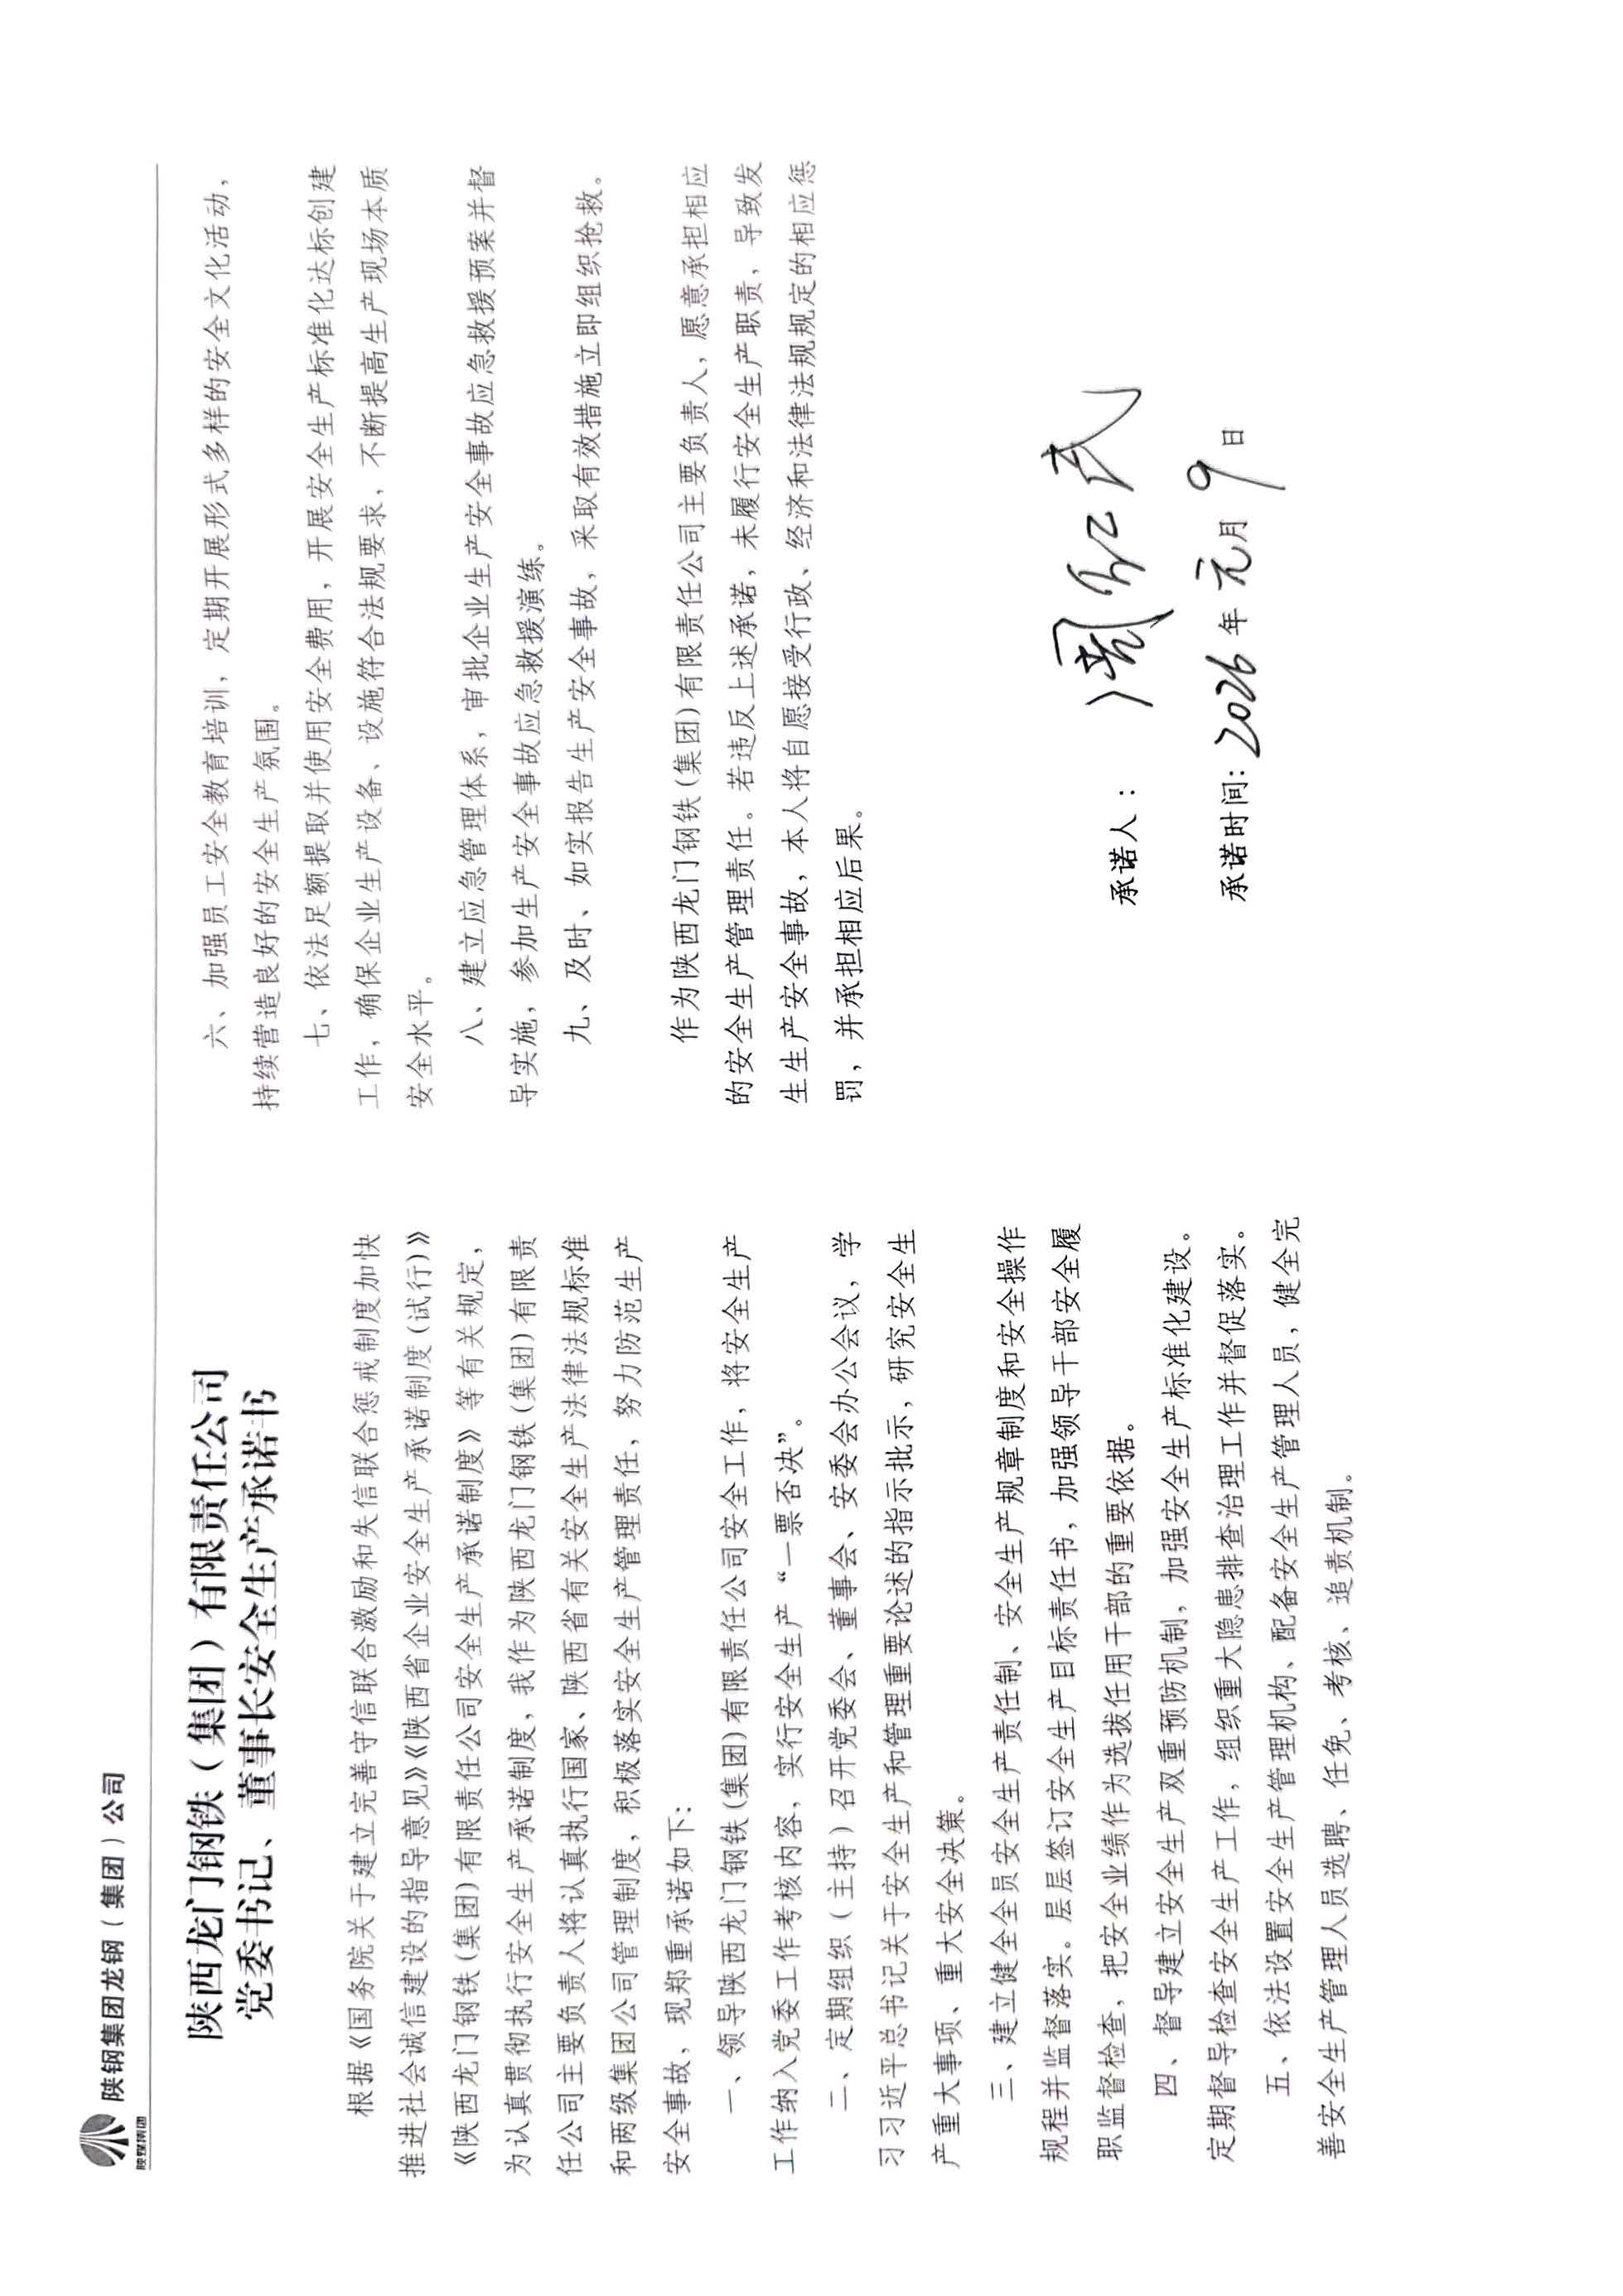 陕煤集团
陕钢集团龙钢（集团）公司
陕西龙门钢铁（集团）有限责任公司
党委书记、董事长安全生产承诺书
根据《国务院关于建立完善守信联合激励和失信联合惩戒制度加快
推进社会诚信建设的指导意见》《陕西省企业安全生产承诺制度（试行）》
《陕西龙门钢铁（集团）有限责任公司安全生产承诺制度》等有关规定，
为认真贯彻执行安全生产承诺制度，我作为陕西龙门钢铁（集团）有限责
任公司主要负责人将认真执行国家、陕西省有关安全生产法律法规标准
和两级集团公司管理制度，积极落实安全生产管理责任，努力防范生产
安全事故，现郑重承诺如下：
一、领导陕西龙门钢铁（集团）有限责任公司安全工作，将安全生产
工作纳入党委工作考核内容，实行安全生产“一票否决”。
二、定期组织（主持）召开党委会、董事会、安委会办公会议，学
习习近平总书记关于安全生产和管理重要论述的指示批示，研究安全生
产重大事项、重大安全决策。
三、建立健全全员安全生产责任制、安全生产规章制度和安全操作
规程并监督落实。层层签订安全生产目标责任书，加强领导干部安全履
职监督检查，把安全业绩作为选拔任用干部的重要依据。
四、督导建立安全生产双重预防机制，加强安全生产标准化建设。
定期督导检查安全生产工作，组织重大隐患排查治理工作并督促落实。
五、依法设置安全生产管理机构、配备安全生产管理人员，健全完
善安全生产管理人员选聘、任免、考核、追责机制。
六、加强员工安全教育培训，定期开展形式多样的安全文化活动，
持续营造良好的安全生产氛围。
七、依法足额提取并使用安全费用，开展安全生产标准化达标创建
工作，确保企业生产设备、设施符合法规要求，不断提高生产现场本质
安全水平。
八、建立应急管理体系，审批企业生产安全事故应急救援预案并督
导实施，参加生产安全事故应急救援演练。
九、及时、如实报告生产安全事故，采取有效措施立即组织抢救。
作为陕西龙门钢铁（集团）有限责任公司主要负责人，愿意承担相应
的安全生产管理责任。若违反上述承诺，未履行安全生产职责，导致发
生生产安全事故，本人将自愿接受行政、经济和法律法规规定的相应惩
罚，并承担相应后果。
承诺人：
承诺时间：2026年元月9日